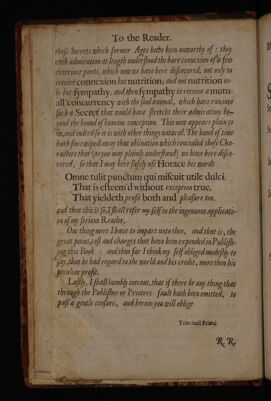 To the Reader.
those Secrets which former Ages have been unworthy of : they
with admiration at length understood the bare connexion of a few
exteriour parts, which now we have here discovered, not only to
receive connexion but nutrition, and not nutrition on-
ly but sympathy, and tho sympathy to receive a mutu-
all concurrency with the soul animal, which have run into
such a Secret that would have stretcht their admiration be-
yond the bound of humane conception. This now appears plain to
us, and indeed so it is with other things natural. The hand of time
hath since wiped away that oblivation which concealed those Cha-
racters that (as you may plainly understand) we have here disco-
vered, so that I may here safely use Horace his words
Omne tulit punctum qui miscuit utile dulci.
That is esteem'd without exception true,
That yieldeth profit both and pleasure too.
and that this is so, I shall refer my self to the ingenuous applicati-
on of my serious Reader.
One thing more I have to impart unto thee, and that is, the
great pains, cost and charges that have been expended in Publish-
ing this Book : and thus far I think my self obliged modestly to
say, that he had regard to the world and his credit, more then his
peculiar profit.
Lastly, I shall humbly intreat, that if there be any thing that
through the Publisher or Printers fault hath been omitted, to
pass a gentle censure, and herein you will oblige
Your reall Friend
R. R.